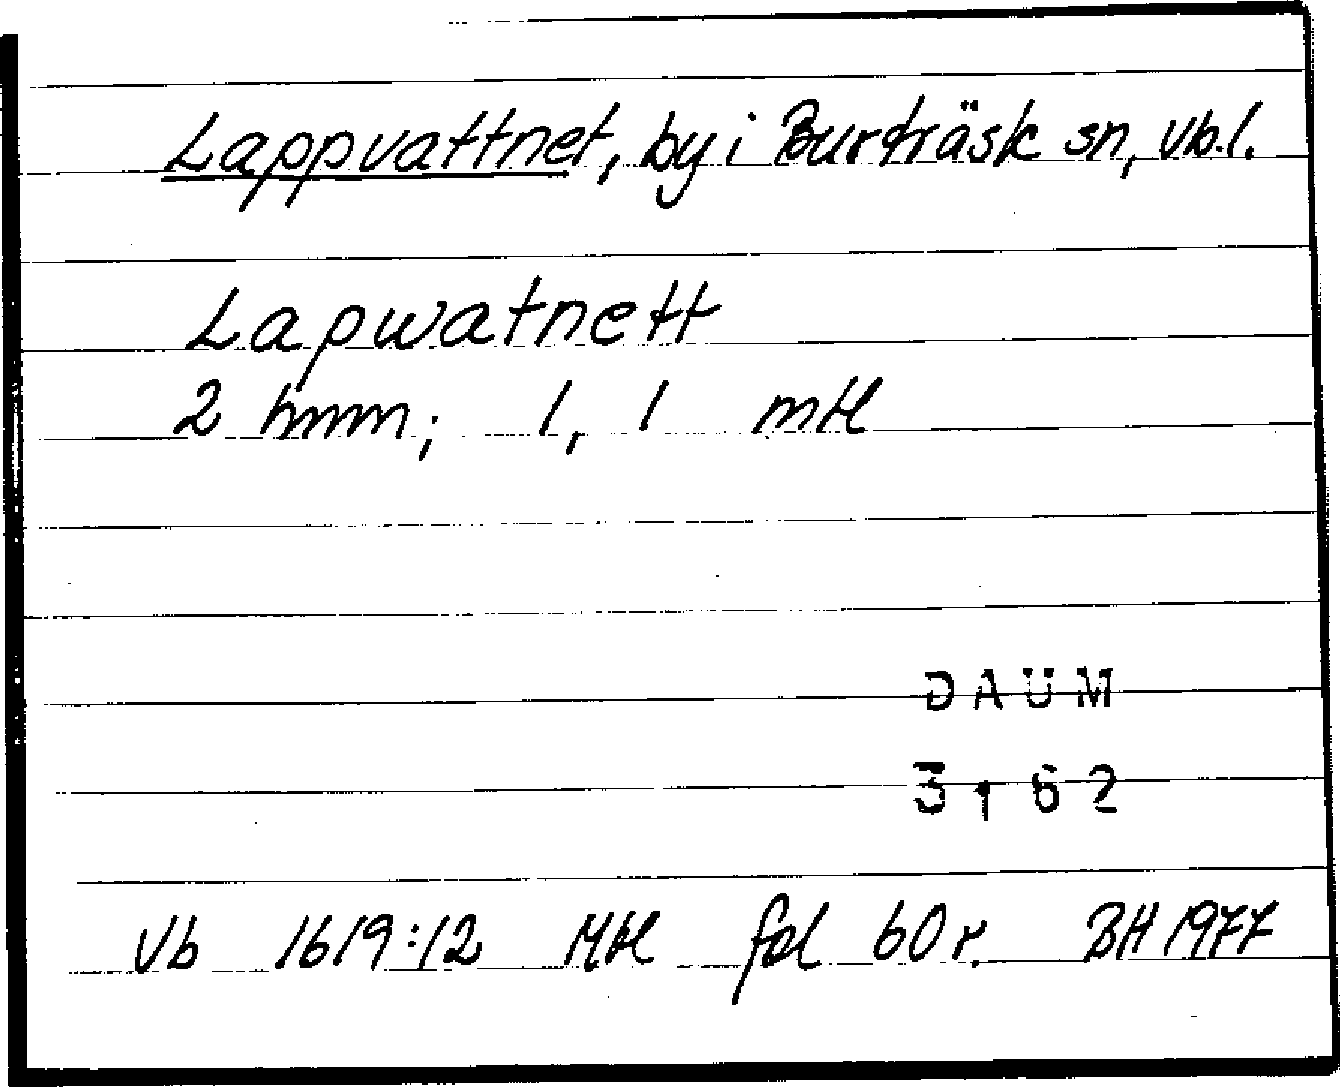 Lappvattnet, by i Burträsk sn, Vb.l.
Lapwatnett
2 hmm; 1, 1 mtl
DAUM
3162
Vb 1619:12 Mtl fol 60 r. BH 1977